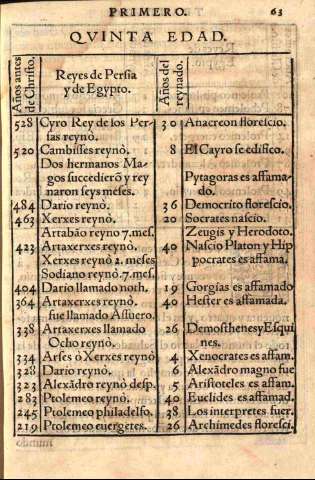 PRIMERO. 63
QVINTA EDAD.
Años antes de Christo. Reyes de Persia y de Egypto. Años del reynado.
528 Cyro Rey de los Per- 30 Anacreon florescio.
sas reynò.
520 Cambisses reynò. 8 El Cayro se edifico.
Dos hermanos Ma-
gos succedierõ y rey Pytagoras es affama
naron seys meses. do.
484 Dario reynò. 36 Democrito florescio
463 Xerxes reynò. 20 Socrates nascio.
Artabão reyno 7. mes. Zeugis y Herodoto.
423 Artaxerxes reynò. 40 Nascio Platon y Hip
Xerxes reynò 2. meses pocrates es affama.
Sodiano reynò. 7. mes.
404 Dario llamado noth. 19 Gorgias es affamado
364 Artaxerxes reynò. 40 Hester es affamada.
fue llamado Assuero.
338 Artaxerxes llamado 26 Demosthenes y Esqui
Ocho reynò. nes.
334 Arses ò Xerxes reynò 4 Xenocrates es affam.
328 Dario reynò. 6 Alexãdro magno fue
323 Alexãdrò reynò desp. 5 Aristoteles es affam.
283 Ptolemeo reynò. 40 Euclides es affamad.
245 Ptolemeo philadelfo. 38 Los interpretes fuer.
219 Ptolemeo euergetes. 26 Archimedes floresci.
mundo